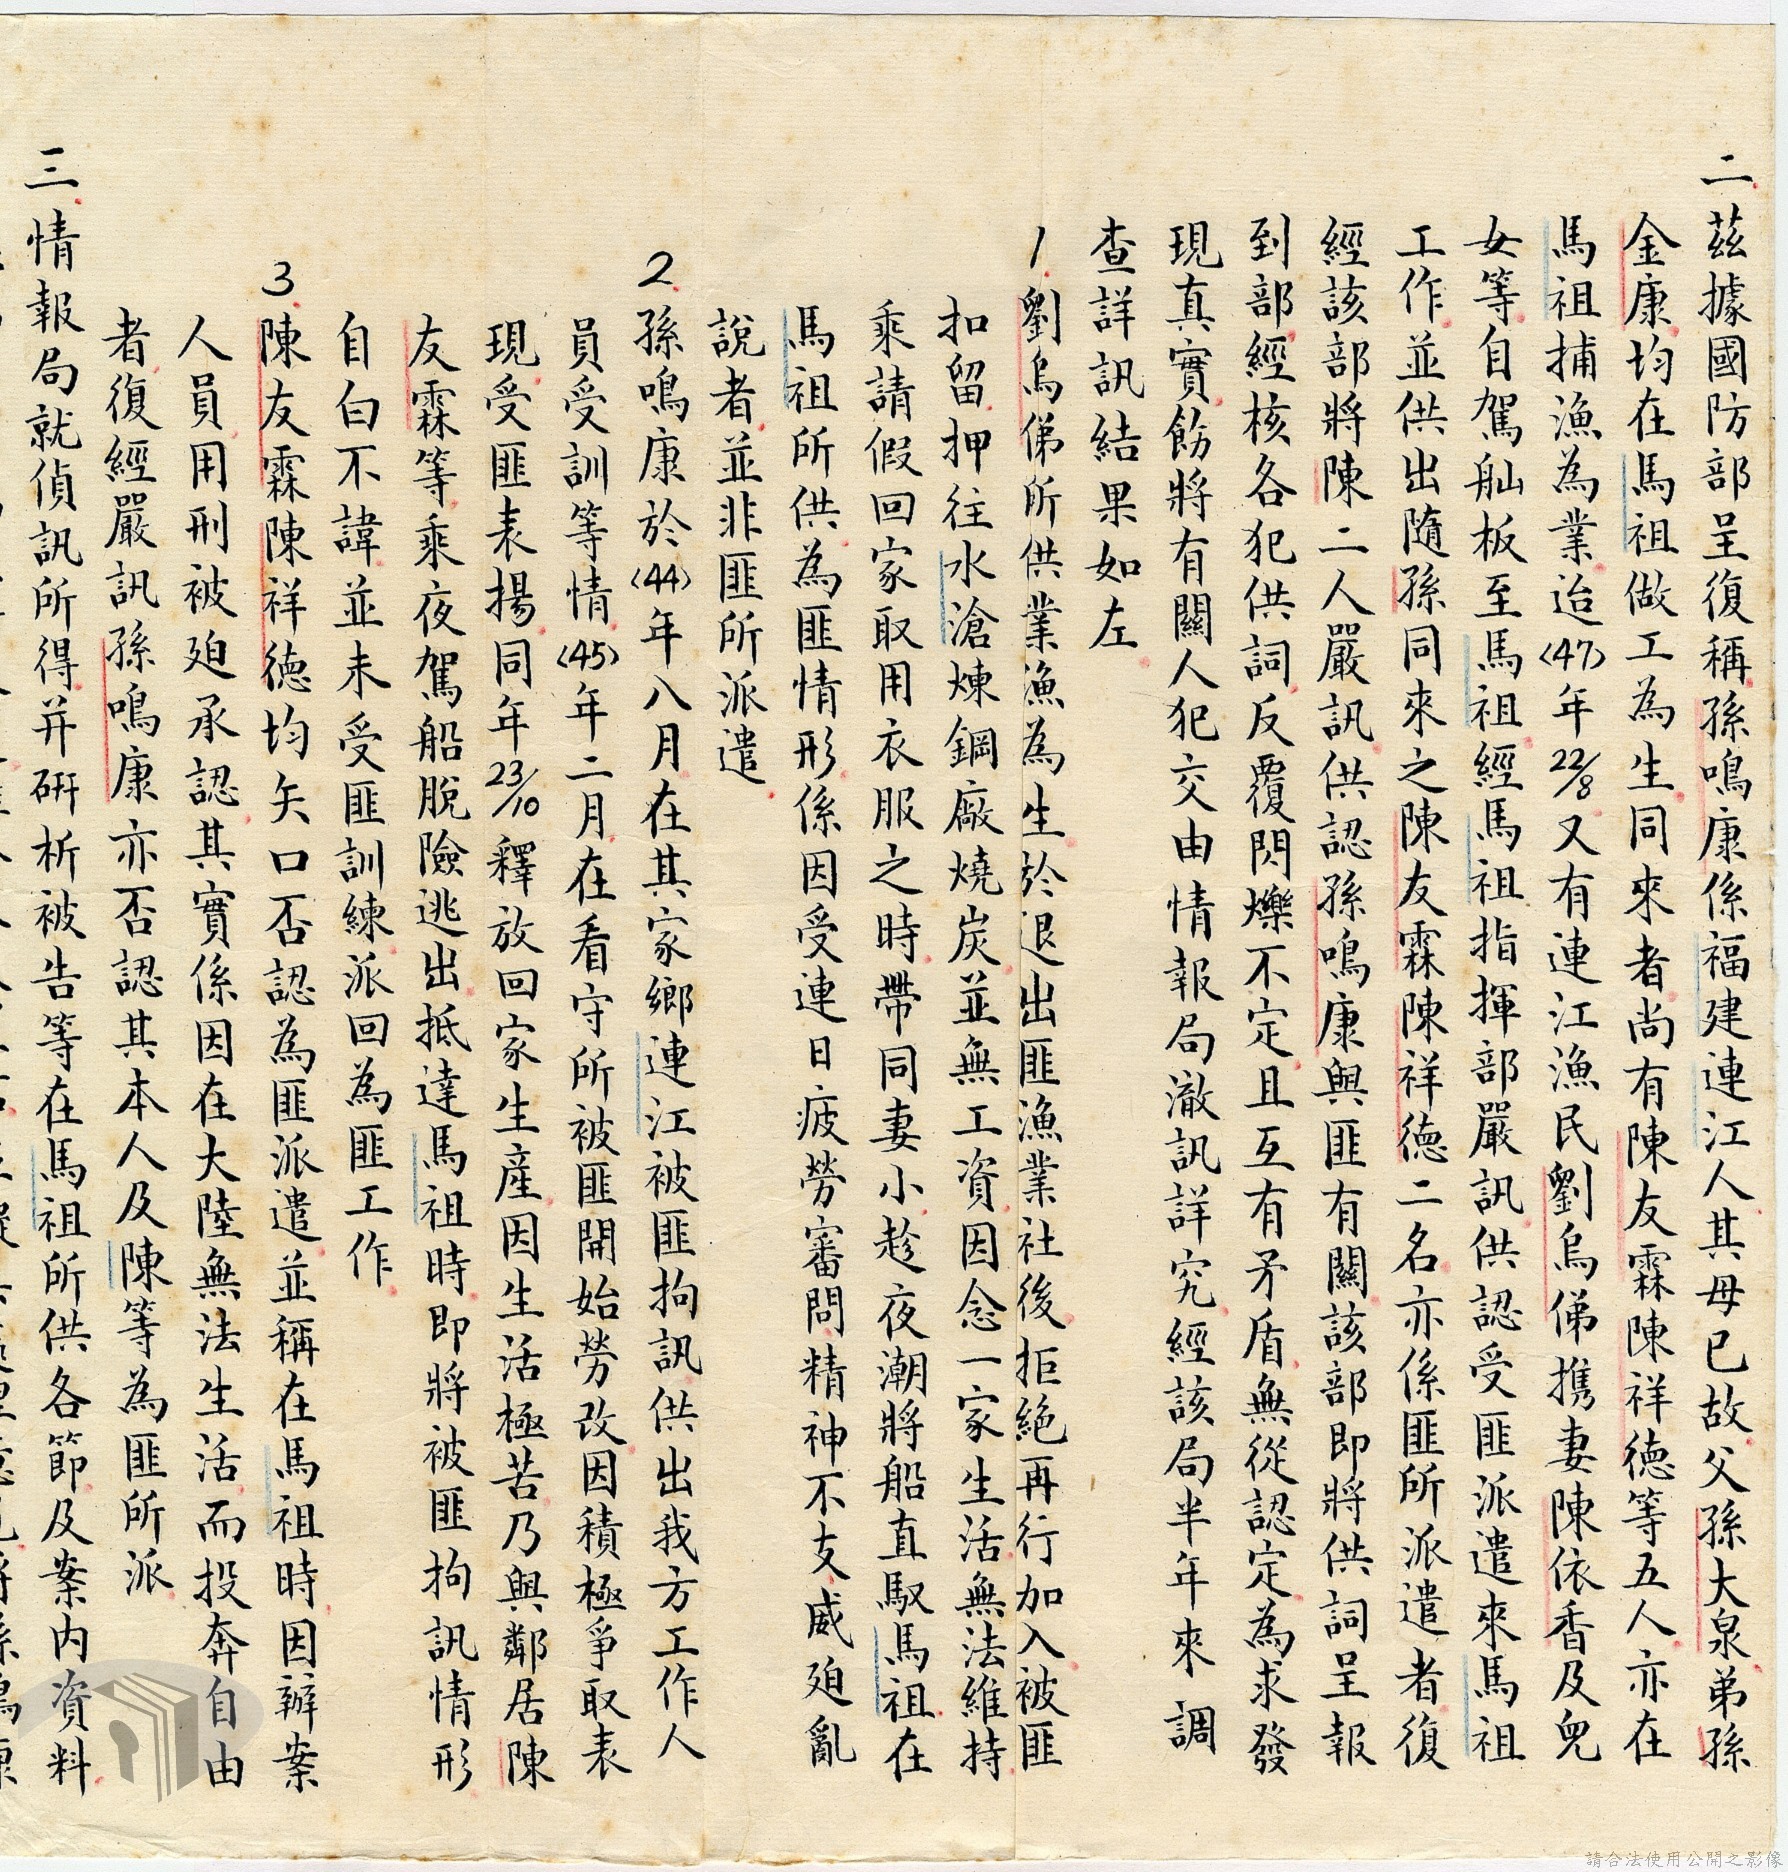 二茲據國防部呈復稱孫鳴康係福建連江人其母已故父孫大泉弟孫
金康均在馬祖做工為生同來者尚有陳友霖陳祥德等五人亦在
馬祖捕漁為業迨(47)年22/8又有連江漁民劉烏俤携妻陳依香及兒
女等自駕舢板至馬祖經馬祖指揮部嚴訊供認受匪派遣來馬祖
工作並供出隨孫同來之陳友霖陳祥德二名亦係匪所派遣者復
經該部將陳二人嚴訊供認孫鳴康與匪有關該部即將供詞呈報
到部經核各犯供詞反覆閃爍不定且互有矛盾無從認定為求發
現真實飭將有關人犯交由情報局澈訊詳究經該局半年來調
查詳訊結果如左
1.劉烏俤所供業漁為生於退出匪漁業社後拒絕再行加入被匪
扣留押往水滄煉鋼廠燒炭並無工資因念一家生活無法維持
乘請假回家取用衣服之時帶同妻小趁夜潮將船直馭馬祖在
馬祖所供為匪情形係因受連日疲勞審問精神不支威廹亂
說者並非匪所派遣
2.孫鳴康於(44)年八月在其家鄉連江被匪拘訊供出我方工作人
員受訓等情(45)年二月在看守所被匪開始勞改因積極爭取表
現受匪表揚同年23/10釋放回家生產因生活極苦乃與鄰居陳
友霖等乘夜駕船脫險逃出抵達馬祖時即將被匪拘訊情形
自白不諱並未受匪訓練派回為匪工作
3.陳友霖陳祥德均矢口否認為匪派遣並稱在馬祖時因辦案
人員用刑被廹承認其實係因在大陸無法生活而投奔自由
者復經嚴訊孫鳴康亦否認其本人及陳等為匪所派
三.情報局就偵訊所得并研析被告等在馬祖所供各節及案內資料
請合法使用公開之影像